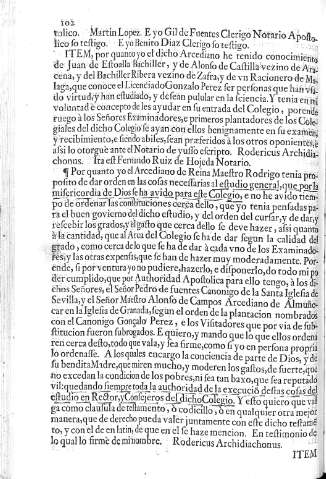 102
tolico. Martin Lopez. E yo Gil de Fuentes Clerigo Notario Aposto-
lico so testigo. E yo Benito Diaz Clerigo so testigo.
ITEM, por quanto yo el dicho Arcediano he tenido conocimiento
de Juan de Estoalla Bachiller, y de Alonso de Castilla vezino de Ara-
cena, y del Bachiller Ribera vezino de Zafra, y de vn Racionero de Ma-
laga, que conoce el Licenciado Gonzalo Perez ser personas que han vi-
do virtud, y han estudiado, y desean pulular en la sciencia. Y tenia en mi
voluntad è concepto de les ayudar en su entrada del Colegio, por ende
ruego à los Señores Examinadores, e primeros plantadores de los Cole-
giales del dicho Colegio se ayan con ellos benignamente en su examen,
y recibimiento, e siendo abiles, sean preferidos à los otros oponientes, è
assi lo otorguè ante el Notario de yusso escripto. Rodericus Archidia-
chonus. Ita est Fernando Ruiz de Hojeda Notario.
¶ Por quanto yo el Arcediano de Reina Maestro Rodrigo tenia pro-
posito de dar orden en las cosas necesarias al estudio general, que por la
misericordia de Dios he avido para este Colegio, e no he avido tiem-
po de ordenar las constituciones cerca dello, que yo tenia pensadas pa-
ra el buen governo del dicho estudio, y del orden del cursar, y de dar, y
rescebir los grados, y el gasto que cerca dello se deve hazer, assi quanto
à la cantidad, que al Arca del Colegio se ha de dar segun la calidad del
grado, como cerca de lo que se ha de dar à cada vno de los Examinado-
res, y las otras expensas, que se han de hazer muy moderadamente. Por-
ende, si por ventura yo no pudiere, hazerlo, e disponerlo, do todo mi po
der cumplido, que por Authoridad Apostolica para ello tengo, à los di-
chos Señores, el Señor Pedro de fuentes Canonigo de la Santa Iglesia de
Sevilla, y el Señor Maestro Alonso de Campos Arcediano de Almuñe-
car en la Iglesia de Granada, segun el orden de la plantacion nombrados
con el Canonigo Gonçalo Perez, e los Visitadores que por via de sub-
stitucion fueron subrogados. E quiero, y mando que lo que ellos ordena-
ren cerca desto, todo que vala, y sea firme, como si yo en persona propria
lo ordenasse. A los quales encargo la conciencia de parte de Dios, y de
su bendita Madre, que miren mucho, y moderen los gastos, de suerte, que
no excedan la condicion de los pobres, ni sea tan baxo, que sea reputado
vil: quedando siempre toda la authoridad de la execuciõ destas cosas del
estudio en Rector, y Consejeros del dicho Colegio. Y esto quiero que val
ga como clausula de testamento, ò codicillo, ò en qualquier otra mejor
manera, que de derecho pueda valer juntamente con este dicho testamẽ
to, y con el de en latin, de que en el se haze mencion. En testimonio de
lo qual lo firmè de mi nombre. Rodericus Archidiachonus.
ITEM